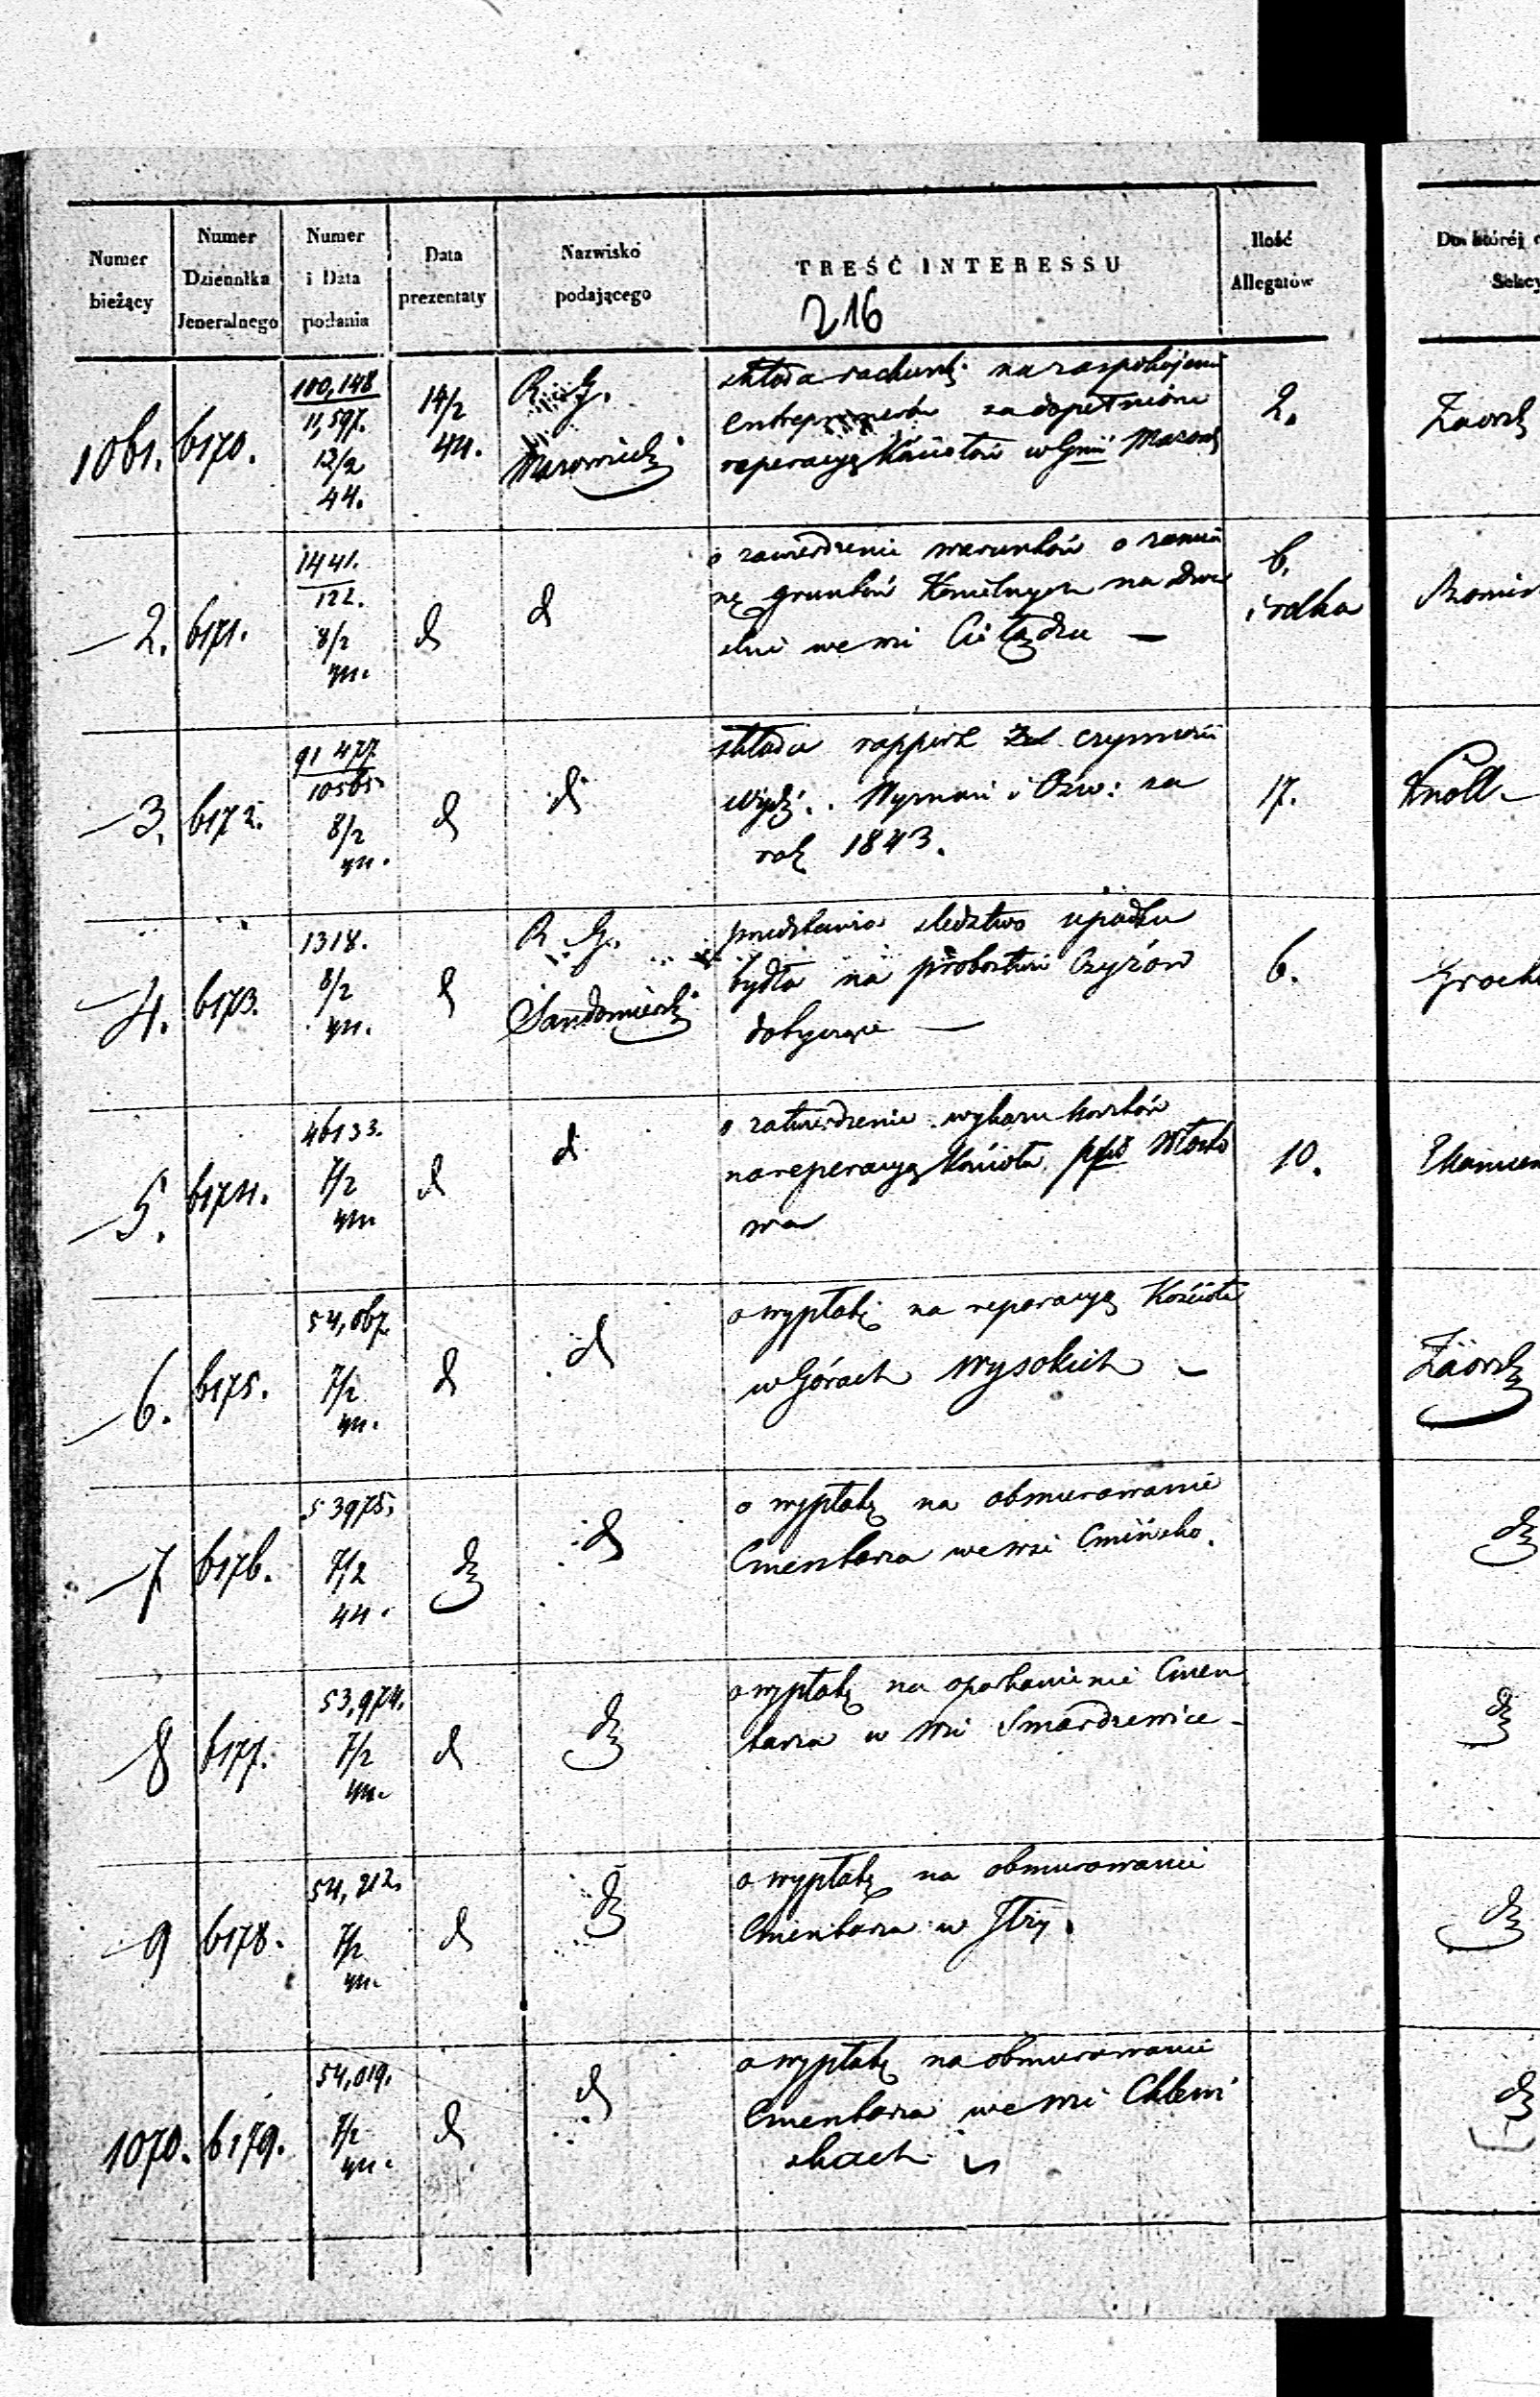 Numer bieżący
Numer Dziennika Jeneralnego
Numer i Data podania
Data prezentaty
Nazwisko podającego
TREŚĆ INTERESSU
Ilość Allegatów
Do której
216
1061. 6170. 100,148 11,597. 12/2 44. 14/2 44. R. G. Mazowiecki
składa rachunki na zaspokojenie
entreprenerów za dopełnione
reperacye kościołów w Gnii Mazow
2.
2. 6171. 1441. 122. 8/2 44. d d
o zatwierdzenie warunków o zamia
nę gruntów
we wsi Cielądzu —
6.
3. 6172. 91 477 8/2 44. d d
składa rapport czynności
Wydź. Wyznań i Ośw: za
rok 1843.
17.
Knoll
4. 6173. 1318. 8/2 44. d R. G. Sandomierski
przedstawia śledztwo upadku
bydła na probostwie Czyżów
dotyczące —
6.
5. 6174. 46133. 7/2 44 d d
o zatwierdzenie wykazu kosztów
na reperacyą kościoła
10.
6. 6175. 54,067. 7/2 44. d d
o wypłatę na reparacyą Kościoła
w Górach Wysokich —
7 6176. 53975. 7/2 44. d d
o wypłatę na obmurowanie
Cmentarza we wsi Cmińsko.
d
8 6177. 53,974. 7/2 44. d d
o wypłatę na oparkanienie Cmen
tarza w wsi Smardzewice -
d
9 6178. 54,212. 7/2 44. d d
o wypłatę na obmurowanie
Cmentarza w Iłży.
d
1070. 6179. 54,019. 7/2 44. d d
o wypłatę na obmurowanie
Cmentarza we wsi Chlewi
skach
d